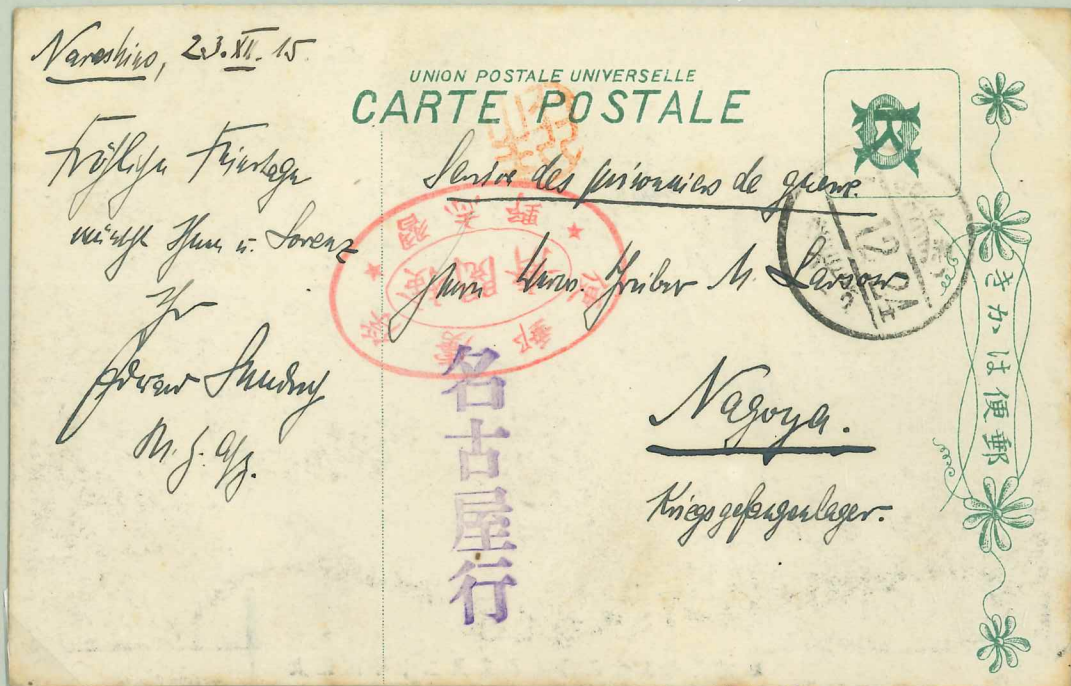 Narashino, 23.XII.15
Fröhliche Feiertage
wünscht Ihnen u. Lorenz
Ihr
UNION POSTALE UNIVERSELLE
CARTE POSTALE
Service des prisonniers de guerre.
Herrn Gruber M.
Nagoya.
Kriegsgefangenlager.
名古屋行
きかは便郵